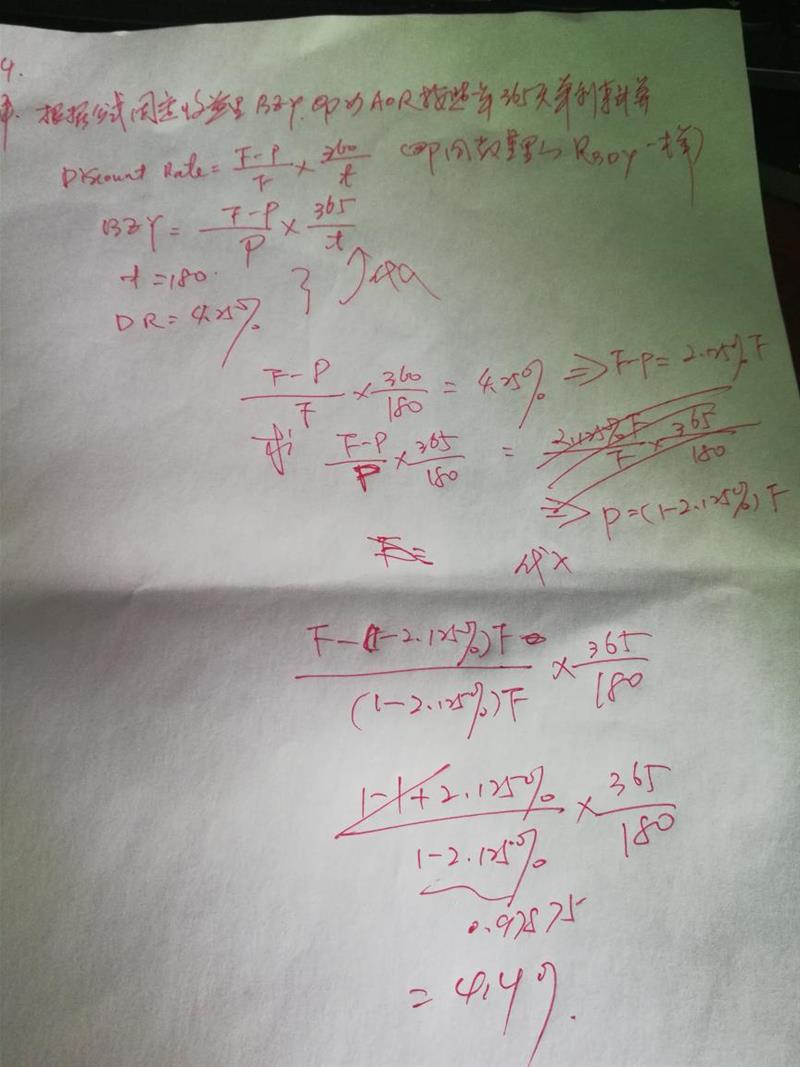 4.
根据公式固定收益里 BEY, 即为 AOR 按照年365天单利来计算
Discount Rate = F-P/F × 360/t (即同数量里的 R BDY 一样)
BEY = F-P/P × 365/t
t = 180
DR = 4.25%
F-P/F × 360/180 = 4.25% ⇒ F-P = 2.125% F
F-P/P × 365/180 = 2.125% F/F × 365/180
⇒ P = (1-2.125%) F
F =
F-(1-2.125%)F/(1-2.125%)F × 365/180
1-1+2.125%/1-2.125% × 365/180
0.97875
= 4.4%.